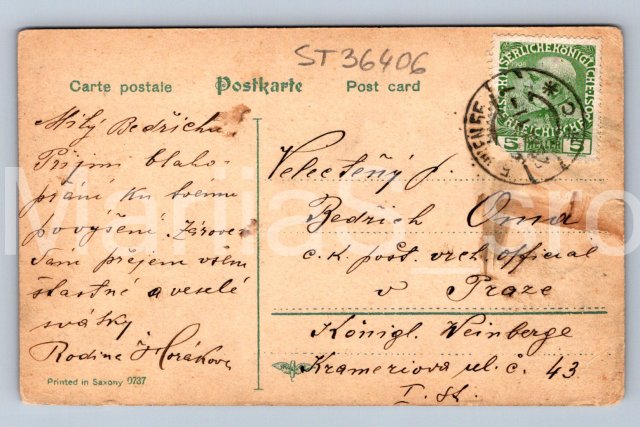 ST36406
Carte postale Postkarte Post card
Milý Bedřichu
Přijmi blaho-
přání ku tvému
povýšení. Zároveň
Vám přejem všem
šťastné a veselé
svátky
Rodina Horákova
Printed in Saxony 9737
KAISERLICHE KÖNIGLICHE
5 5
Velectěný p.
Bedřich Omer
c. k. pošt. vrch. official
v Praze
Königl. Weinberge
Krameriova ul. č. 43
I. st.